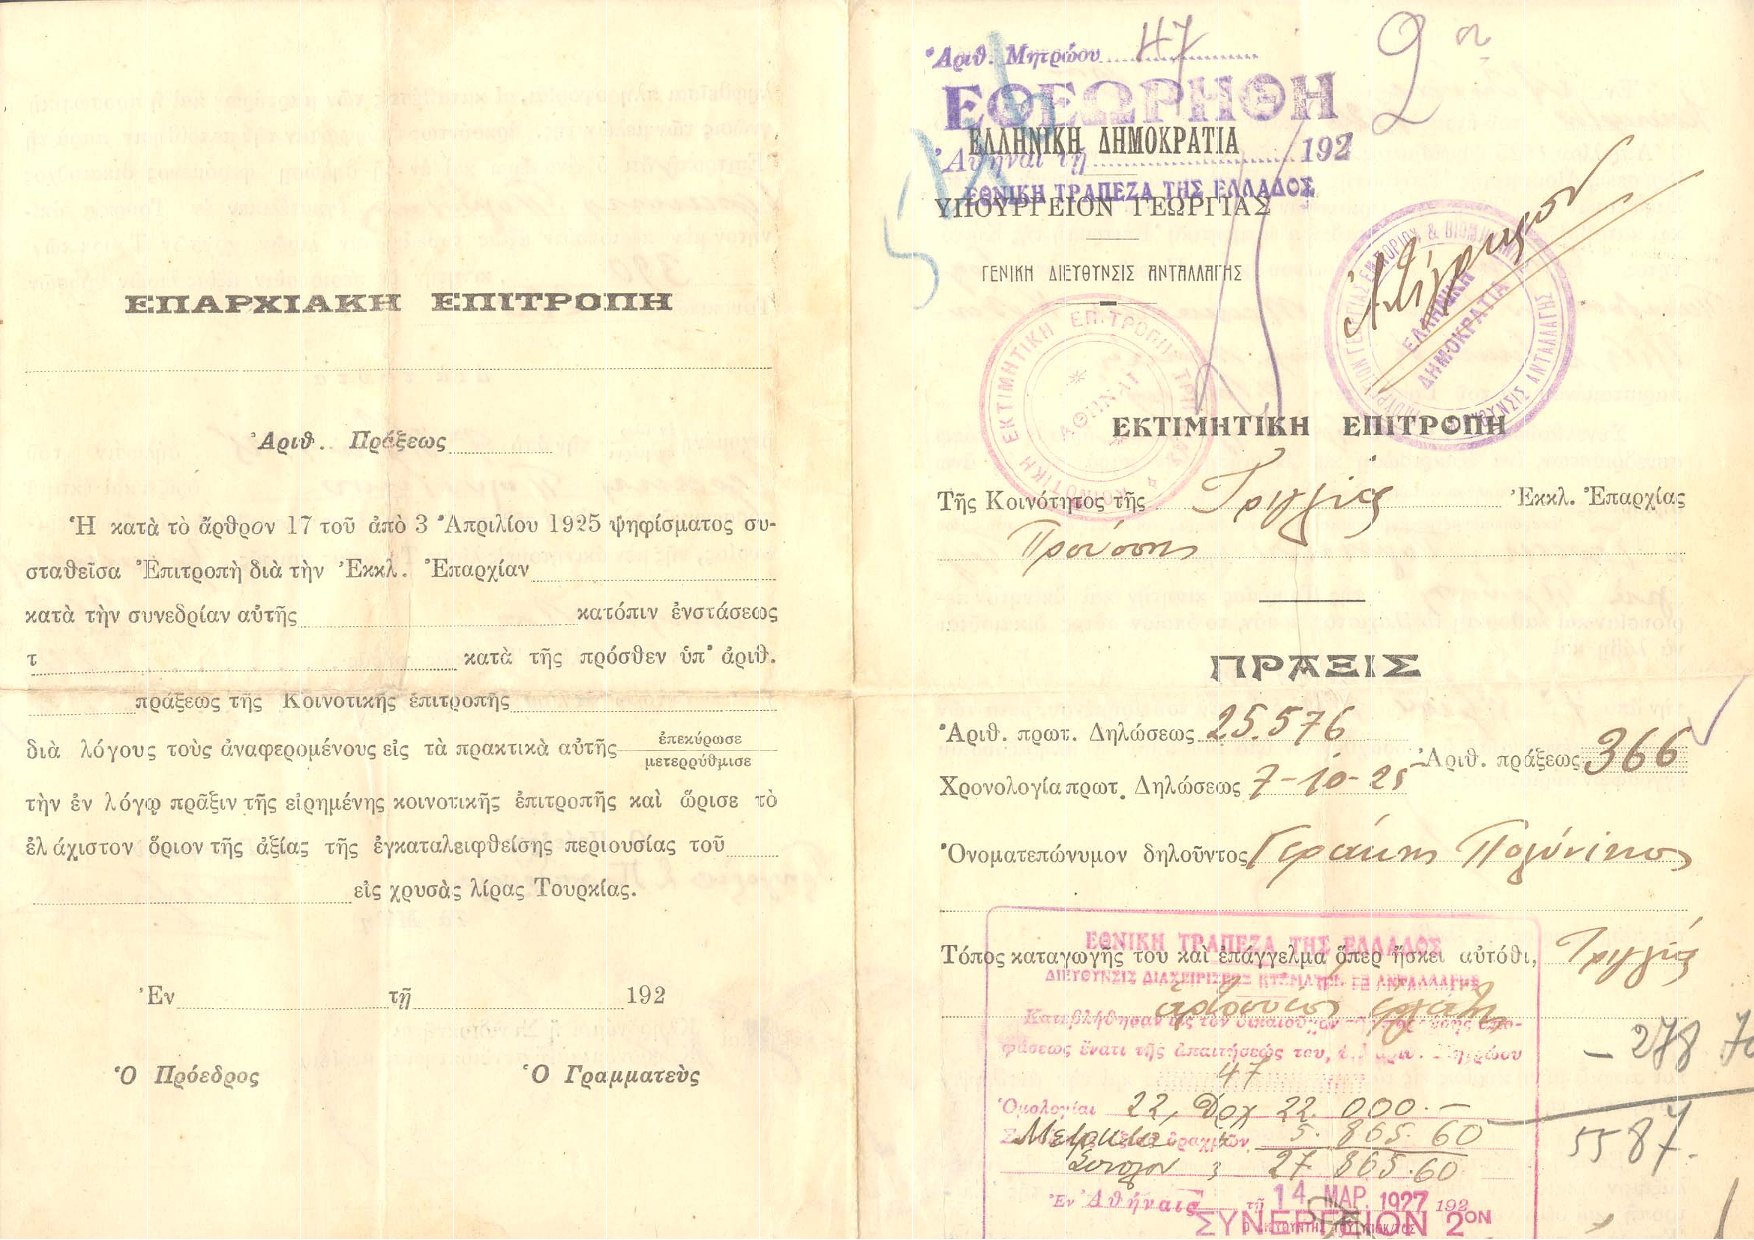 ΕΠΑΡΧΙΑΚΗ ΕΠΙΤΡΟΠΗ
Ἀριθ. Πράξεως
Ἡ κατὰ τὸ ἄρθρον 17 τοῦ ἀπὸ 3 Ἀπριλίου 1925 ψηφίσματος συ-
σταθεῖσα Ἐπιτροπὴ διὰ τὴν Ἐκκλ. Ἐπαρχίαν
κατὰ τὴν συνεδρίαν αὐτῆς κατόπιν ἐνστάσεως
τ κατὰ τῆς πρόσθεν ὑπ' ἀριθ.
πράξεως τῆς Κοινοτικῆς ἐπιτροπῆς
διὰ λόγους τοὺς ἀναφερομένους εἰς τὰ πρακτικὰ αὐτῆς ἐπεκύρωσε
μετερρύθμισε
τὴν ἐν λόγῳ πρᾶξιν τῆς εἰρημένης κοινοτικῆς ἐπιτροπῆς καὶ ὥρισε τὸ
ἐλάχιστον ὅριον τῆς ἀξίας τῆς ἐγκαταλειφθείσης περιουσίας τοῦ
εἰς χρυσὰς λίρας Τουρκίας.
Ἐν τῇ 192
Ὁ Πρόεδρος Ὁ Γραμματεὺς
Ἀριθ. Μητρώου 47
2α
ΕΘΕΩΡΗΘΗ
ΕΛΛΗΝΙΚΗ ΔΗΜΟΚΡΑΤΙΑ
Ἀθῆναι τῇ 192
ΕΘΝΙΚΗ ΤΡΑΠΕΖΑ ΤΗΣ ΕΛΛΑΔΟΣ
ΥΠΟΥΡΓΕΙΟΝ ΓΕΩΡΓΙΑΣ
ΓΕΝΙΚΗ ΔΙΕΥΘΥΝΣΙΣ ΑΝΤΑΛΛΑΓΗΣ
ΕΛΛΗΝΙΚΗ
ΔΗΜΟΚΡΑΤΙΑ
ΑΘΗΝΑΙ
ΕΚΤΙΜΗΤΙΚΗ ΕΠΙΤΡΟΠΗ
Τῆς Κοινότητος τῆς Τριγλίας Ἐκκλ. Ἐπαρχίας
Προύσσης
ΠΡΑΞΙΣ
Ἀριθ. πρωτ. Δηλώσεως 25.576
Ἀριθ. πράξεως 366
Χρονολογία πρωτ. Δηλώσεως 7-10-25
Ὀνοματεπώνυμον δηλοῦντος Γεράκης Πολύνικος
ΕΘΝΙΚΗ ΤΡΑΠΕΖΑ ΤΗΣ ΕΛΛΑΔΟΣ
Τόπος καταγωγῆς του καὶ ἐπάγγελμα ὅπερ ἤσκει αὐτόθι, Τριγλία
ΔΙΕΥΘΥΝΣΙΣ ΔΙΑΧΕΙΡΙΣΕΩΣ ΚΤΗΜΑΤΩΝ ΕΞ ΑΝΤΑΛΛΑΓΗΣ
Κατεβλήθησαν εἰς τὸν δικαιοῦχον
φάσεως ἔναντι τῆς ἀπαιτήσεώς του, Μητρώου
47
- 278 70
Ὁμολογίαι 22, Δρχ 22.000.-
Μετρητὰ δραχμῶν 5.865.60
5587.
Σύνολον 27.865.60
Ἐν Ἀθήναις τῇ 14 ΜΑΡ. 1927 192
ΣΥΝΕΡΓΕΙΟΝ 2ΟΝ